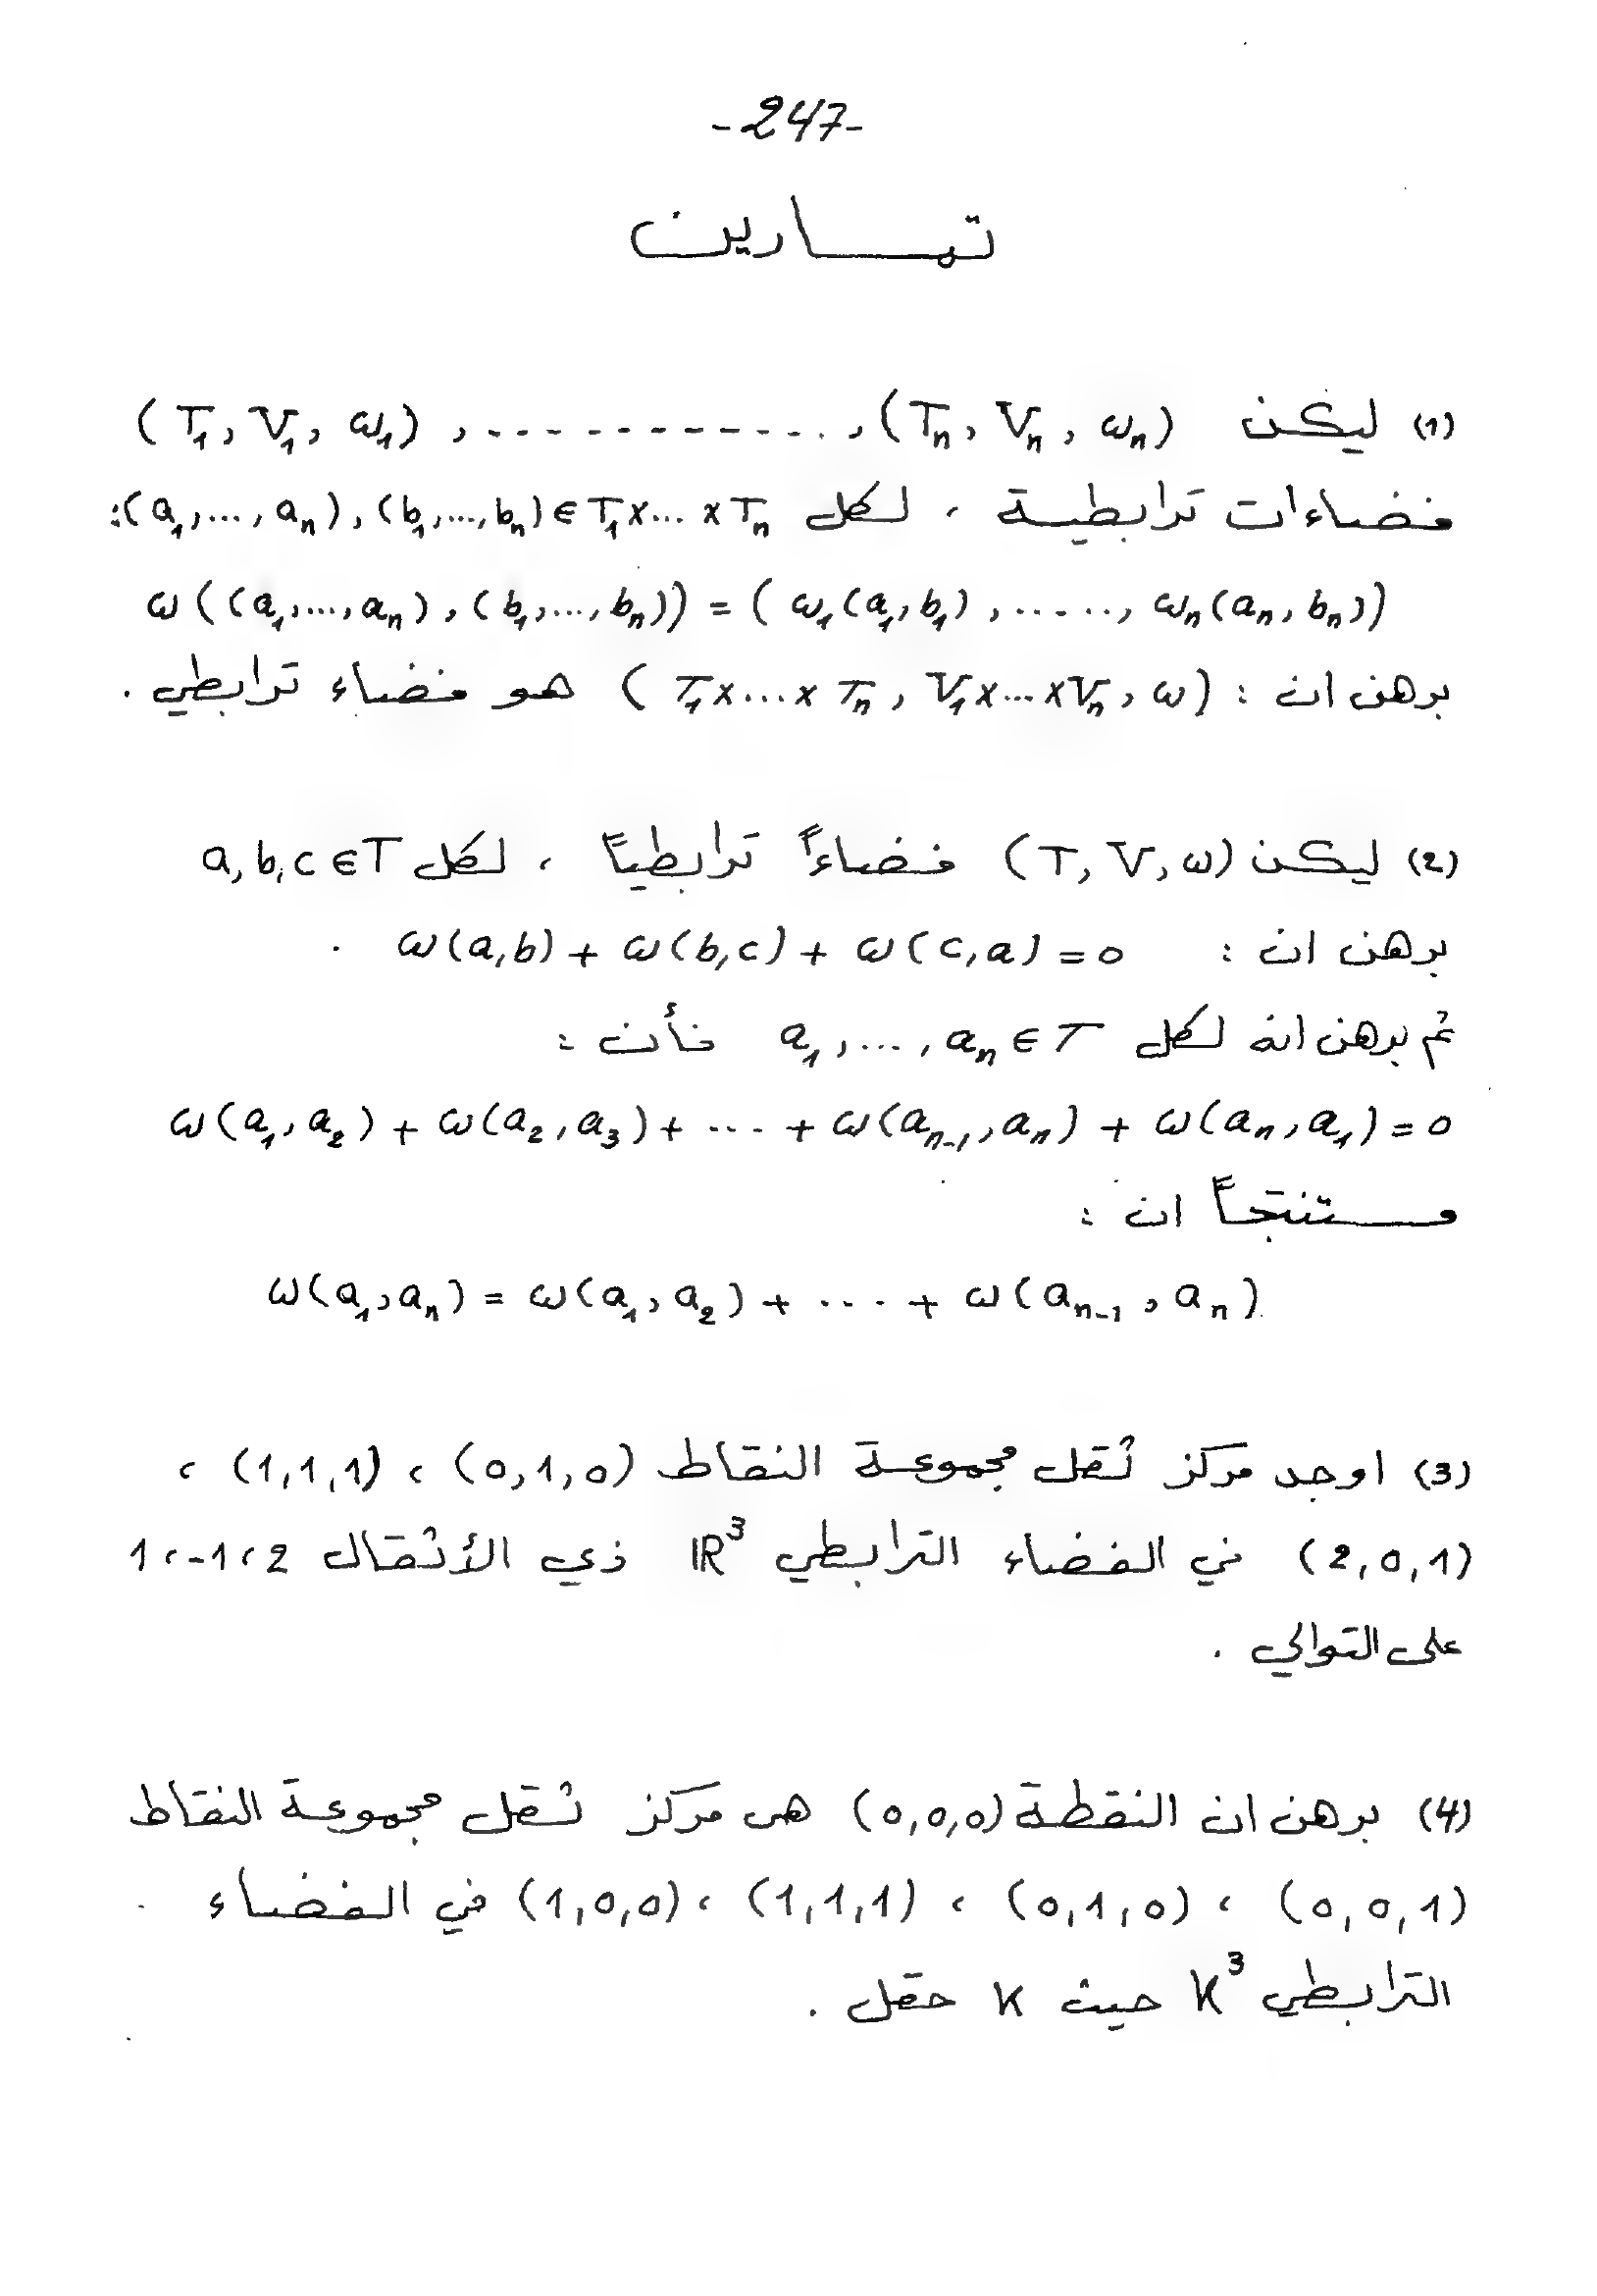 -247-
تمارين
(1) ليكن (T₁, V₁, ω₁) , ............ , (Tₙ, Vₙ, ωₙ)
فضاءات ترابطية ، لكل (a₁,..., aₙ), (b₁,..., bₙ) ∈ T₁x...xTₙ :
ω((a₁,...,aₙ),(b₁,...,bₙ)) = (ω₁(a₁,b₁), ....., ωₙ(aₙ,bₙ))
برهن ان : (T₁x...xTₙ, V₁x...xVₙ, ω) هو فضاء ترابطي .
(2) ليكن (T, V, ω) فضاءً ترابطياً ، لكل a,b,c ∈ T
برهن ان : ω(a,b) + ω(b,c) + ω(c,a) = 0 .
ثم برهن انه لكل a₁, ..., aₙ ∈ T فأن :
ω(a₁,a₂) + ω(a₂,a₃) + ... + ω(aₙ₋₁,aₙ) + ω(aₙ,a₁) = 0
مستنتجاً ان :
ω(a₁,aₙ) = ω(a₁,a₂) + .... + ω(aₙ₋₁,aₙ)
(3) اوجد مركز ثقل مجموعة النقاط (0,1,0) ، (1,1,1) ،
(2,0,1) في الفضاء الترابطي ℝ³ ذي الأثقال 2، 1-، 1
على التوالي .
(4) برهن ان النقطة (0,0,0) هي مركز ثقل مجموعة النقاط
(0,0,1) ، (0,1,0) ، (1,1,1) ، (1,0,0) في الفضاء
الترابطي K³ حيث K حقل .